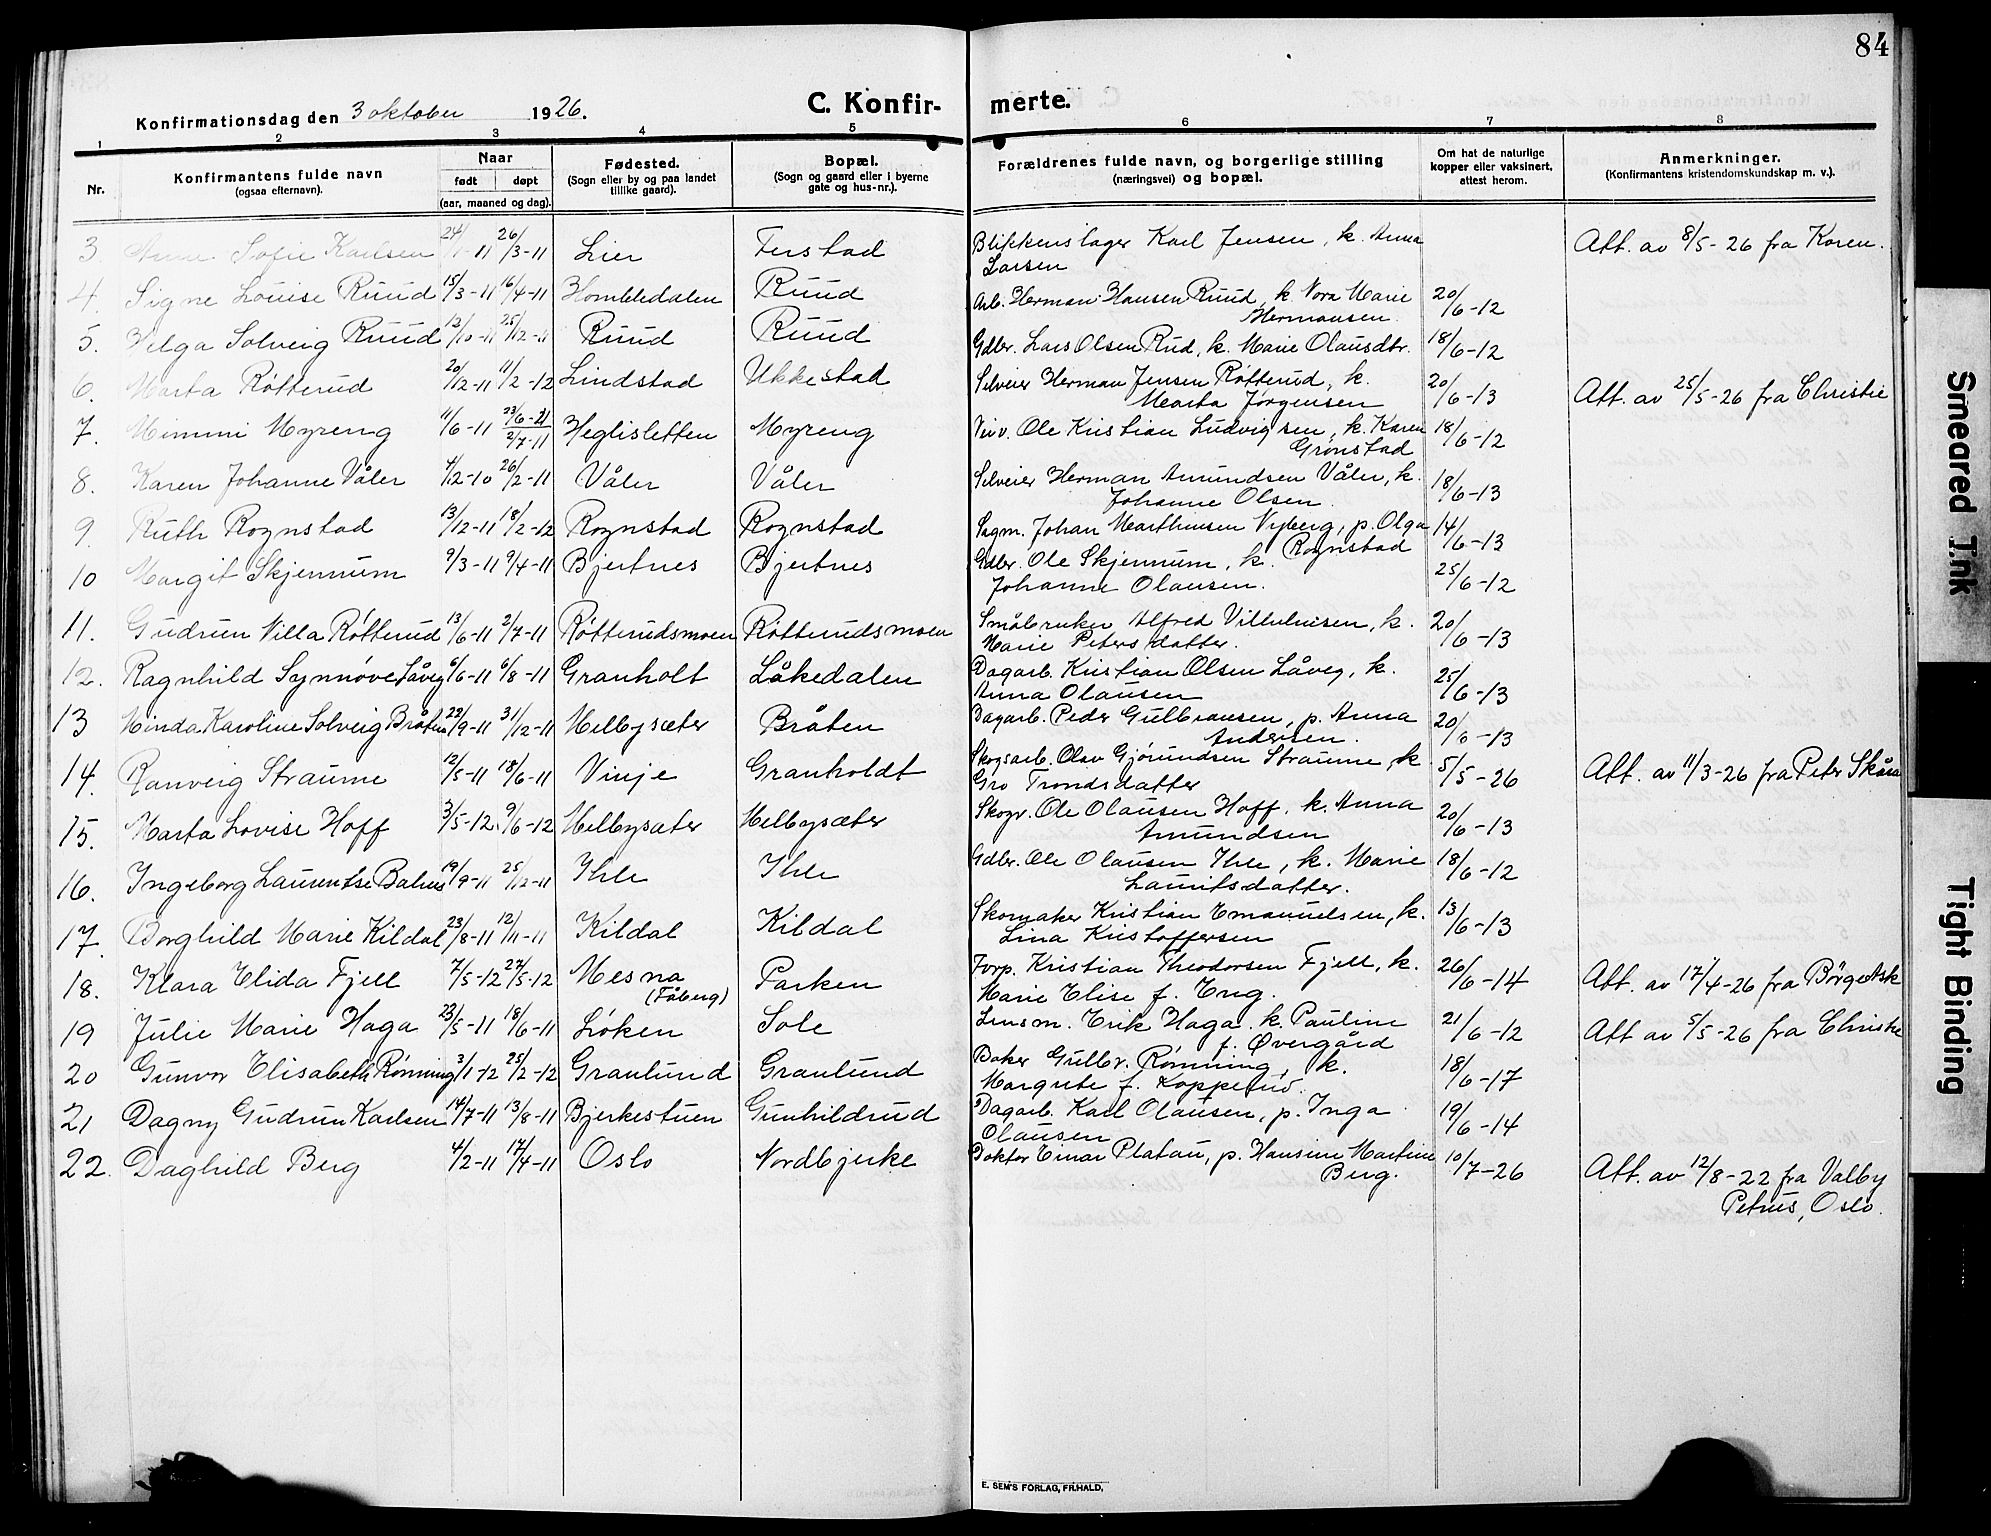 84
Konfirmationsdag den 3 oktober 1926.
C. Konfir- merte.
1 2 3 4 5 6 7 8
Nr.
Konfirmantens fulde navn
(ogsaa efternavn).
Naar
født døpt
(aar, maaned og dag).
Fødested.
(Sogn eller by og paa landet
tillike gaard).
Bopæl.
(Sogn og gaard eller i byerne
gate og hus-nr.).
Forældrenes fulde navn, og borgerlige stilling
(næringsvei) og bopæl.
Om hat de naturlige
kopper eller vaksinert,
attest herom.
Anmerkninger.
(Konfirmantens kristendomskundskap m. v.).
3. Sofie Karlsen 26/3-11 Lier Ferstad Blikkenslager Karl Jensen, k. Anna Att. av 8/5-26 fra Koren.
Larsen
4. Signe Louise Ruud 15/3-11 16/4-11 Hombledalen Ruud Arb. Herman Hansen Ruud, k. Nora Marie 20/6-12
Hermansen
5. Helga Solveig Ruud 12/10-11 25/12-11 Ruud Ruud Gdbr. Lars Olsen Rud, k. Marie Olausdtr. 18/6-12
6. Marta Røtterud 20/12-11 11/2-12 Lindstad Ukkestad Selveier Herman Jensen Røtterud, k. 20/6-13 Att. av 25/5-26 fra Christie
Marta Jørgensen
7. Mimmi Myreng 11/6-11 23/6-21 2/7-11 Heglisletten Myreng Ole Kristian Ludvigsen, k. Karen 18/6-12
Grønstad
8. Karen Johanne Våler 4/12-10 26/2-11 Våler Våler Selveier Herman Amundsen Våler, k. 18/6-13
Johanne Olsen
9. Ruth Rognstad 13/12-11 18/2-12 Rognstad Rognstad Sagm. Johan Marthinsen Nyberg, p. Olga 14/6-13
Rognstad
10 Margit Skjennum 9/3-11 9/4-11 Bjertnes Bjertnes Gdbr. Ole Skjennum, k. 25/6-12
Johanne Olausen.
11. Gudrun Villa Røtterud 13/6-11 2/7-11 Røtterudsmoen Røtterudsmoen Småbruker Alfred Villulmsen, k. 20/6-13
Marie Petersdatter.
12. Ragnhild Synnøve Låveg 6/6-11 6/8-11 Granholt Låkedalen Dagarb. Kristian Olsen Låveg, k. 25/6-13
Anna Olausen
13 Minda Karoline Solveig Bråten 22/9-11 31/12-11 Melbysæter Bråten Dagarb. Peder Gulbransen, p. Anna 20/6-13
Andersen.
14. Ranveig Straume 12/5-11 18/6-11 Vinje Granholdt Skogsarb. Olav Gjørundsen Straume, k 5/5-26 Att. av 11/3-26 fra Peter Skåra
Gro Trondsdatter
15. Marta Lovise Hoff 3/5-12 9/6-12 Melbysæter Melbysæter Skogv. Ole Olausen Hoff, k. Anna 20/6-13
Amundsen
16. Ingeborg Laurentse Bahus 19/9-11 25/12-11 Ihle Ihle Gdbr. Ole Olausen Ihle, k. Marie 18/6-12
Lauritsdatter.
17. Borghild Marie Kildal 23/8-11 12/11-11 Kildal Kildal Skomaker Kristian Emanuelsen, k. 13/6-13
Lina Kristoffersen
18. Klara Elida Fjell 7/5-12 27/5-12 Mesna Parken Forp. Kristian Theodorsen Fjell, k. 26/6-14 Att. av 17/4-26 fra Børge Ask
(Fåberg) Marie Elise f. Eng.
19 Julie Marie Haga 23/5-11 18/6-11 Løken Sole Lensm. Erik Haga. k. Pauline 21/6-12 Att av 5/5-26 fra Christie
f. Øvergård
20 Gunvor Elisabeth Rønning 3/1-12 25/2-12 Granlund Granlund Baker Gulbr. Rønning, k. 18/6-17
Margrete f. Kopperud.
21 Dagny Gudrun Karlsen 14/7-11 13/8-11 Bjerkestuen Gunhildrud Dagarb. Karl Olausen, p. Inga 19/6-14
Olausen
22. Daghild Berg 4/2-11 17/4-11 Oslo Nordbjerke Doktor Einar Platou, p. Hansine Martine 10/7-26 Att. av 12/8-22 fra Valby
Berg. Petrus, Oslo.
E. SEM'S FORLAG, FR.HALD.
Smeared Ink
Tight Binding